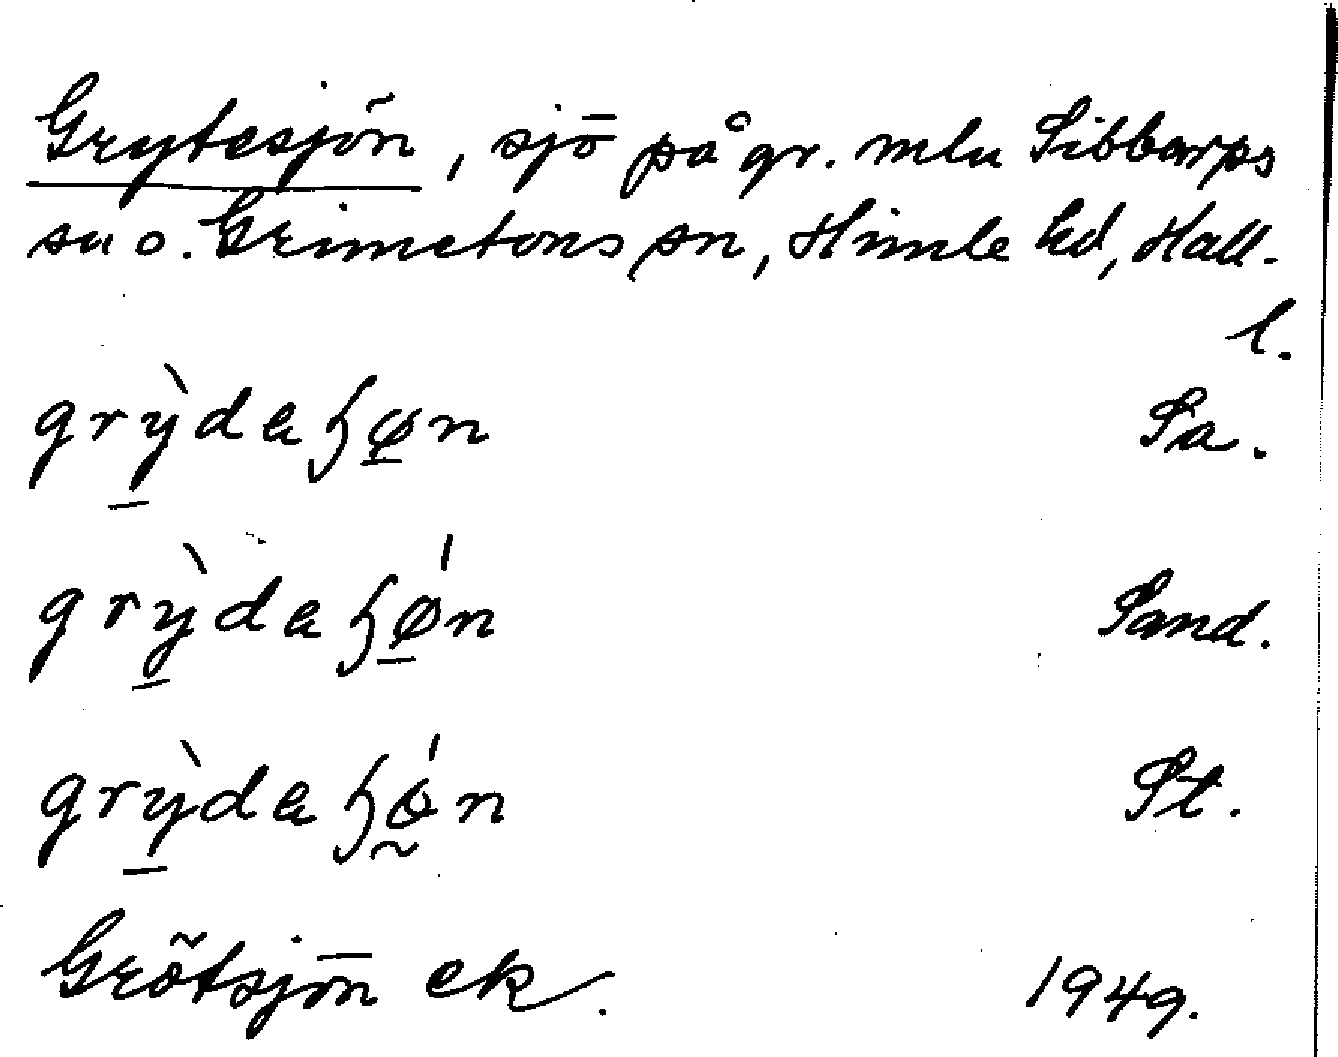 Grytesjön, sjö på gr. mln Sibbarps
sn o. Grimetons sn, Himle hd, Hall-
l.
grỳdaʂøn Sa.
grỳdaʂǿn Sand.
grỳdaʂǿn St.
Grötsjön ek. 1949.